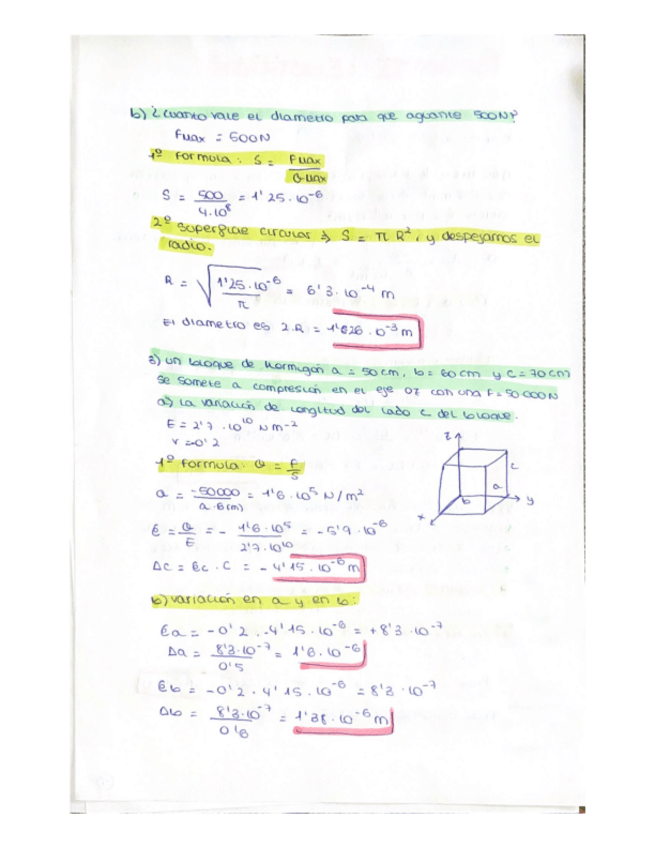 b) ¿cuanto vale el diametro para que aguante 500N?
Fmax = 500N
1º Formula: S = Fmax / σmax
S = 500 / 4·10⁸ = 1'25·10⁻⁶
2º Superficie circular ⇒ S = π R², y despejamos el
radio.
R = √(1'25·10⁻⁶ / π) = 6'3·10⁻⁴ m
El diametro es 2·R = 1'026·0⁻³ m
3) un bloque de hormigon a = 50 cm, b = 60 cm y c = 70 cm
se somete a compresión en el eje OZ con una F = 50 000N
a) La variación de longitud del lado c del bloque.
E = 2'7·10¹⁰ N m⁻²
v = 0'2
1º Formula: σ = F / S
σ = -50000 / a·b(m) = 1'6·10⁵ N/m²
ε = σ / E = - 1'6·10⁵ / 2'7·10¹⁰ = -5'9·10⁻⁶
Δc = εc · c = - 4'15·10⁻⁶ m
z
c
a
b
y
x
b) variación en a y en b:
εa = -0'2 · -4'15·10⁻⁶ = +8'3·10⁻⁷
Δa = 8'3·10⁻⁷ / 0'5 = 1'6·10⁻⁶
εb = -0'2 · 4'15·10⁻⁶ = 8'3·10⁻⁷
Δb = 8'3·10⁻⁷ / 0'6 = 1'38·10⁻⁶ m